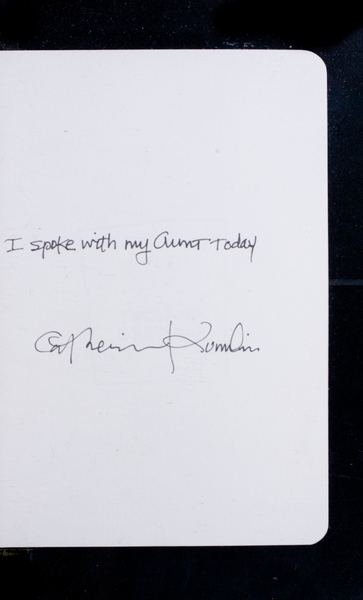 I spoke with my Aunt Today
Catherine